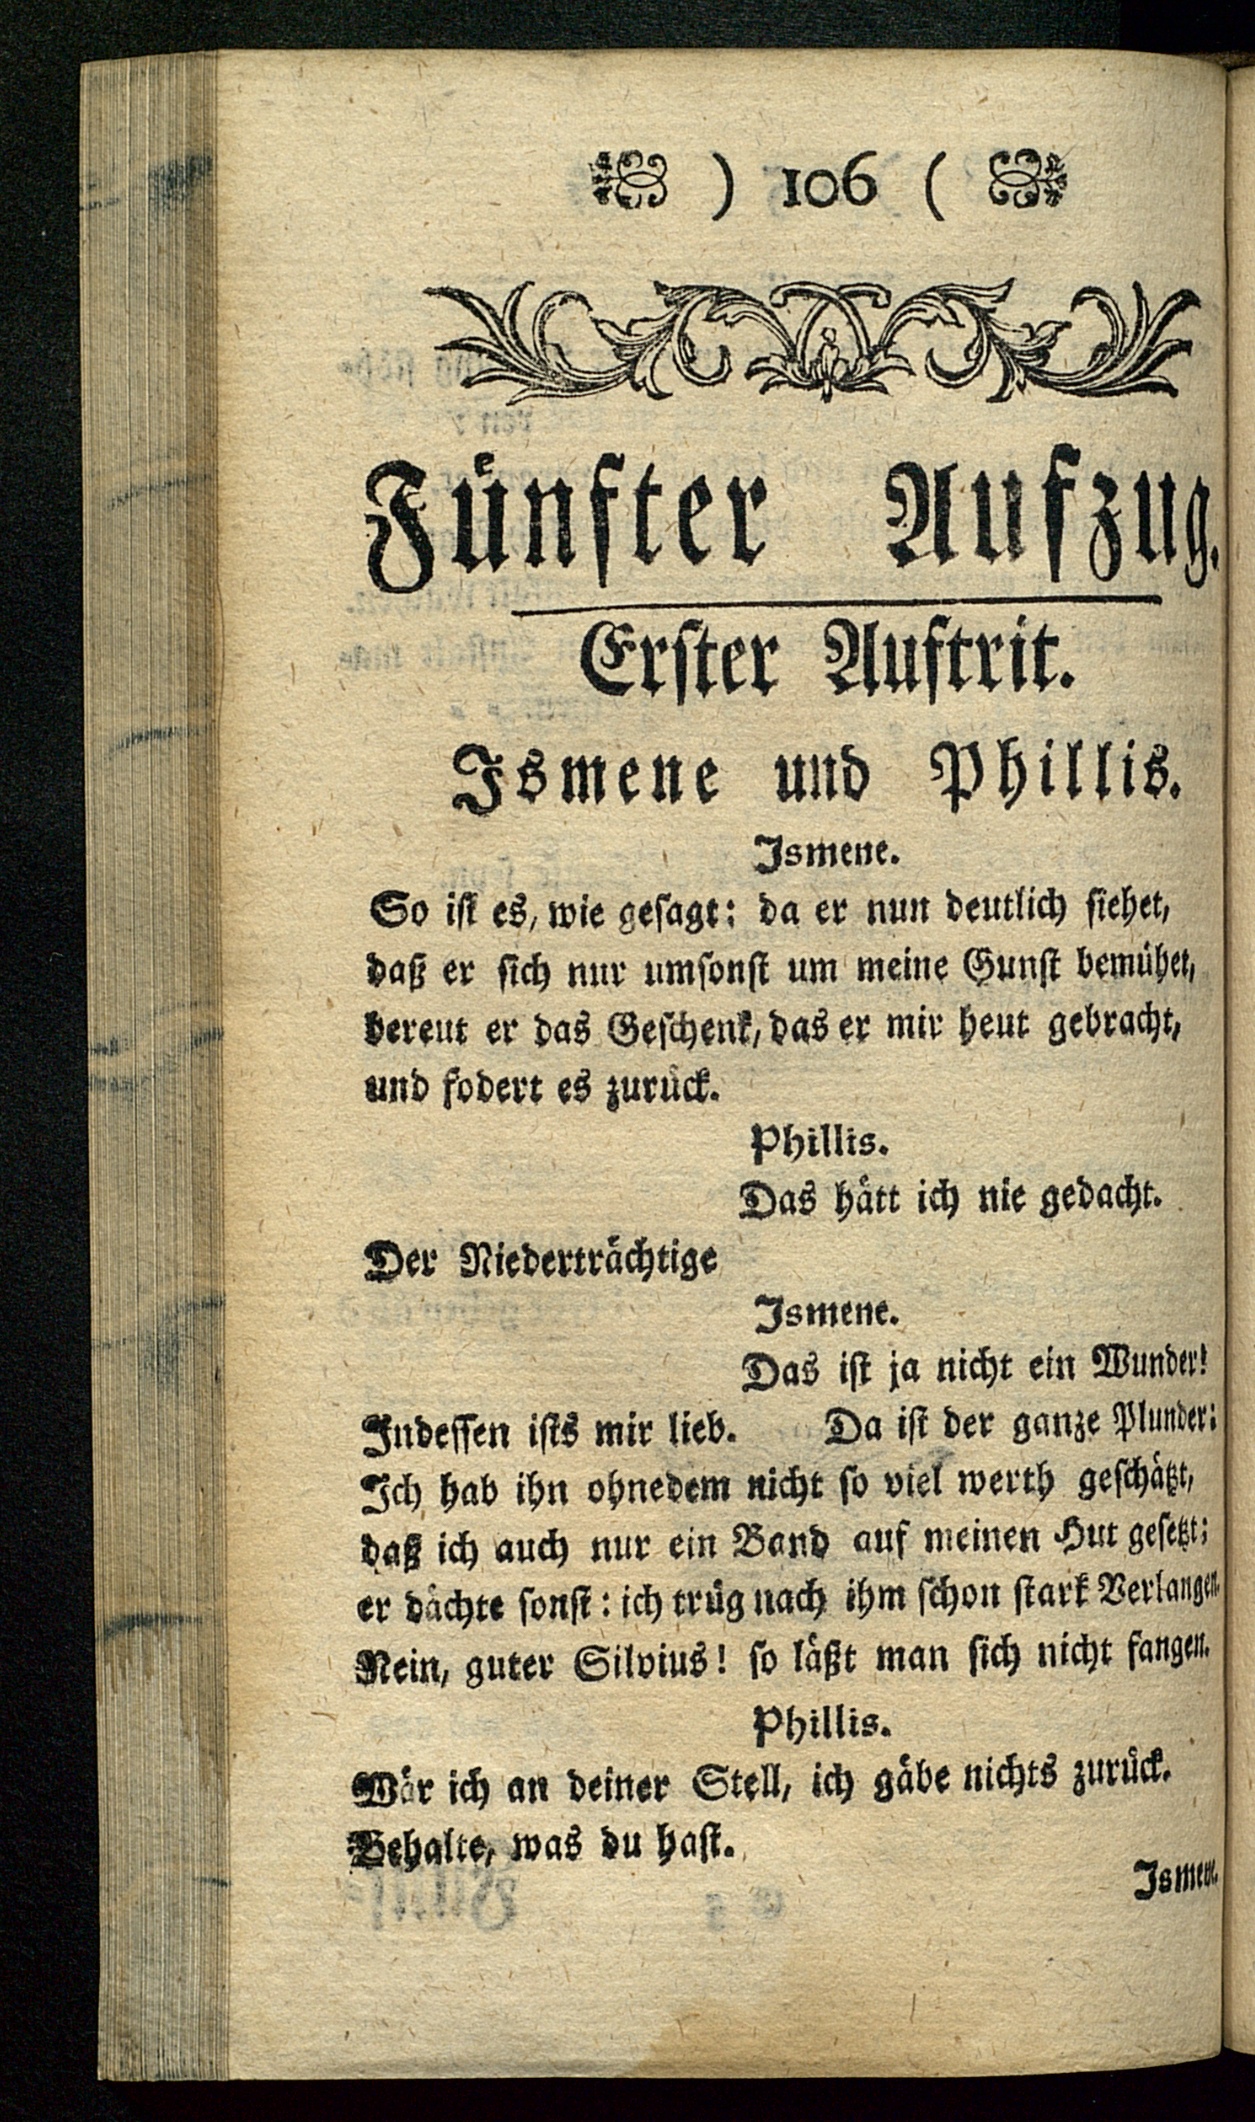 ) 106 (
Fünfter Aufzug.
Erster Auftrit.
Ismene und Phillis.
Ismene.
So ist es, wie gesagt: da er nun deutlich siehet,
daß er sich nur umsonst um meine Gunst bemühet,
bereut er das Geschenk, das er mir heut gebracht,
und fodert es zurück.
Phillis.
Das hätt ich nie gedacht.
Der Niederträchtige
Ismene.
Das ist ja nicht ein Wunder!
Indessen ists mir lieb. Da ist der ganze Plunder:
Ich hab ihn ohnedem nicht so viel werth geschätzt,
daß ich auch nur ein Band auf meinen Hut gesetzt;
er dächte sonst: ich trüg nach ihm schon stark Verlangen.
Nein, guter Silvius! so läßt man sich nicht fangen.
Phillis.
Wär ich an deiner Stell, ich gäbe nichts zurück.
Behalte, was du hast.
Ismene.